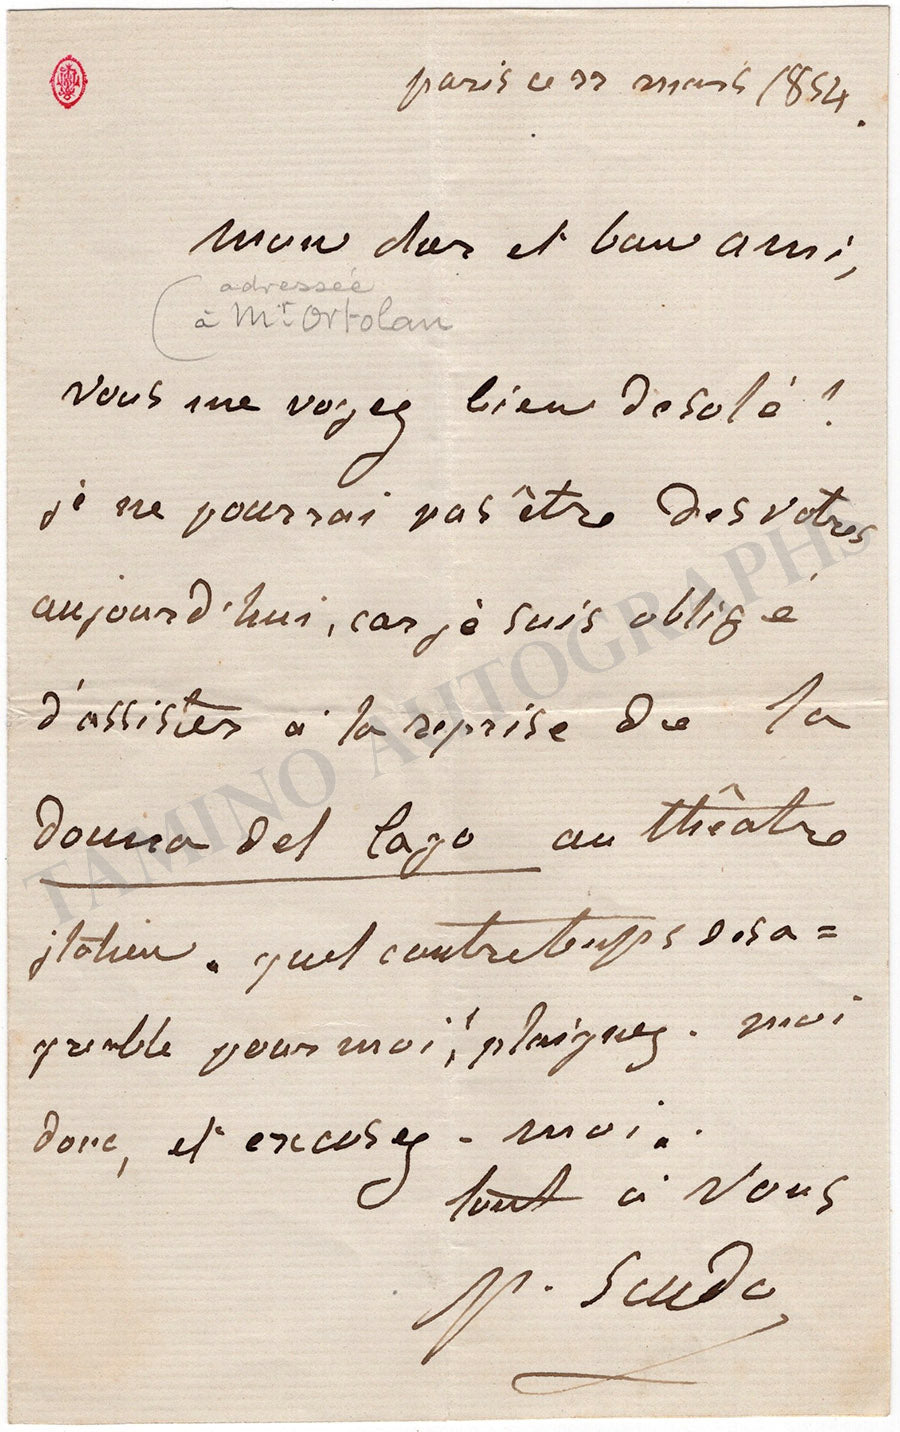 paris ce 22 mars 1854.
mon cher et bon ami,
(adressée
à Mr Ortolan
vous me voyez bien desolé !
je ne pourrai pas être des votres
aujourd'hui, car je suis obligé
d'assister à la reprise de la
donna del lago au théâtre
italien. quel contretemps desa=
greable pour moi! plaignez-moi
donc, et excusez-moi.
tout à vous
p. Scudo
TAMINO AUTOGRAPHS